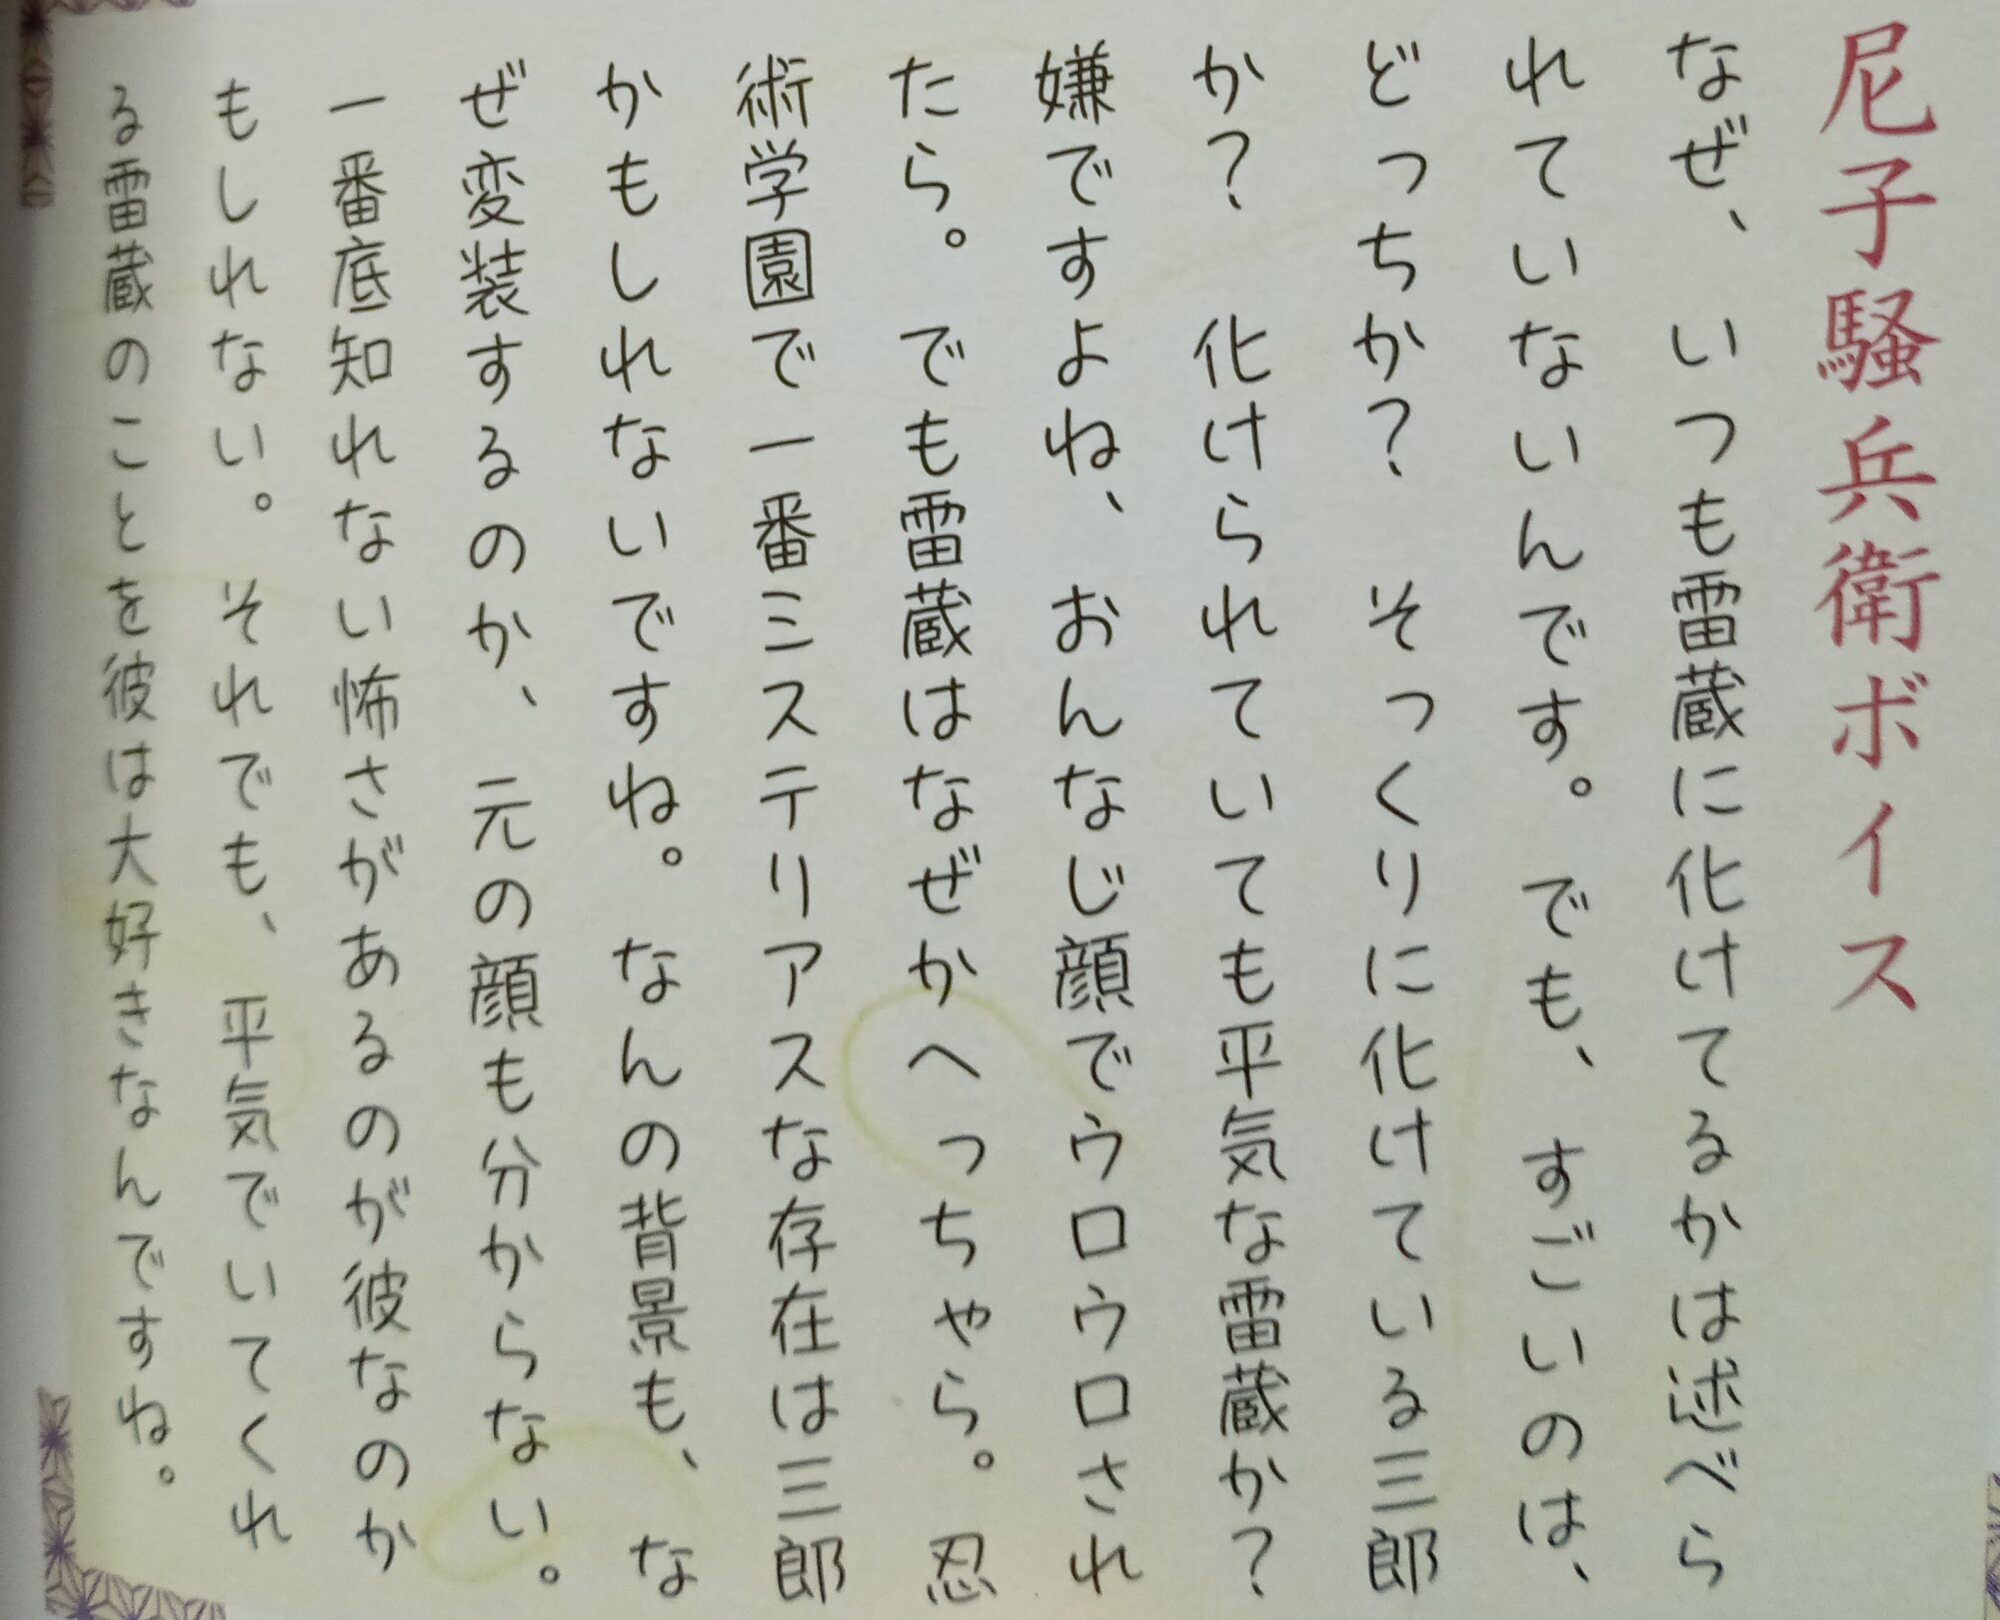 尼子騒兵衛ボイス
なぜ、いつも雷蔵に化けてるかは述べら
れていないんです。でも、すごいのは、
どっちか？　そっくりに化けている三郎
か？　化けられていても平気な雷蔵か？
嫌ですよね、おんなじ顔でウロウロされ
たら。でも雷蔵はなぜかへっちゃら。忍
術学園で一番ミステリアスな存在は三郎
かもしれないですね。なんの背景も、な
ぜ変装するのか、元の顔も分からない。
一番底知れない怖さがあるのが彼なのか
もしれない。それでも、平気でいてくれ
る雷蔵のことを彼は大好きなんですね。